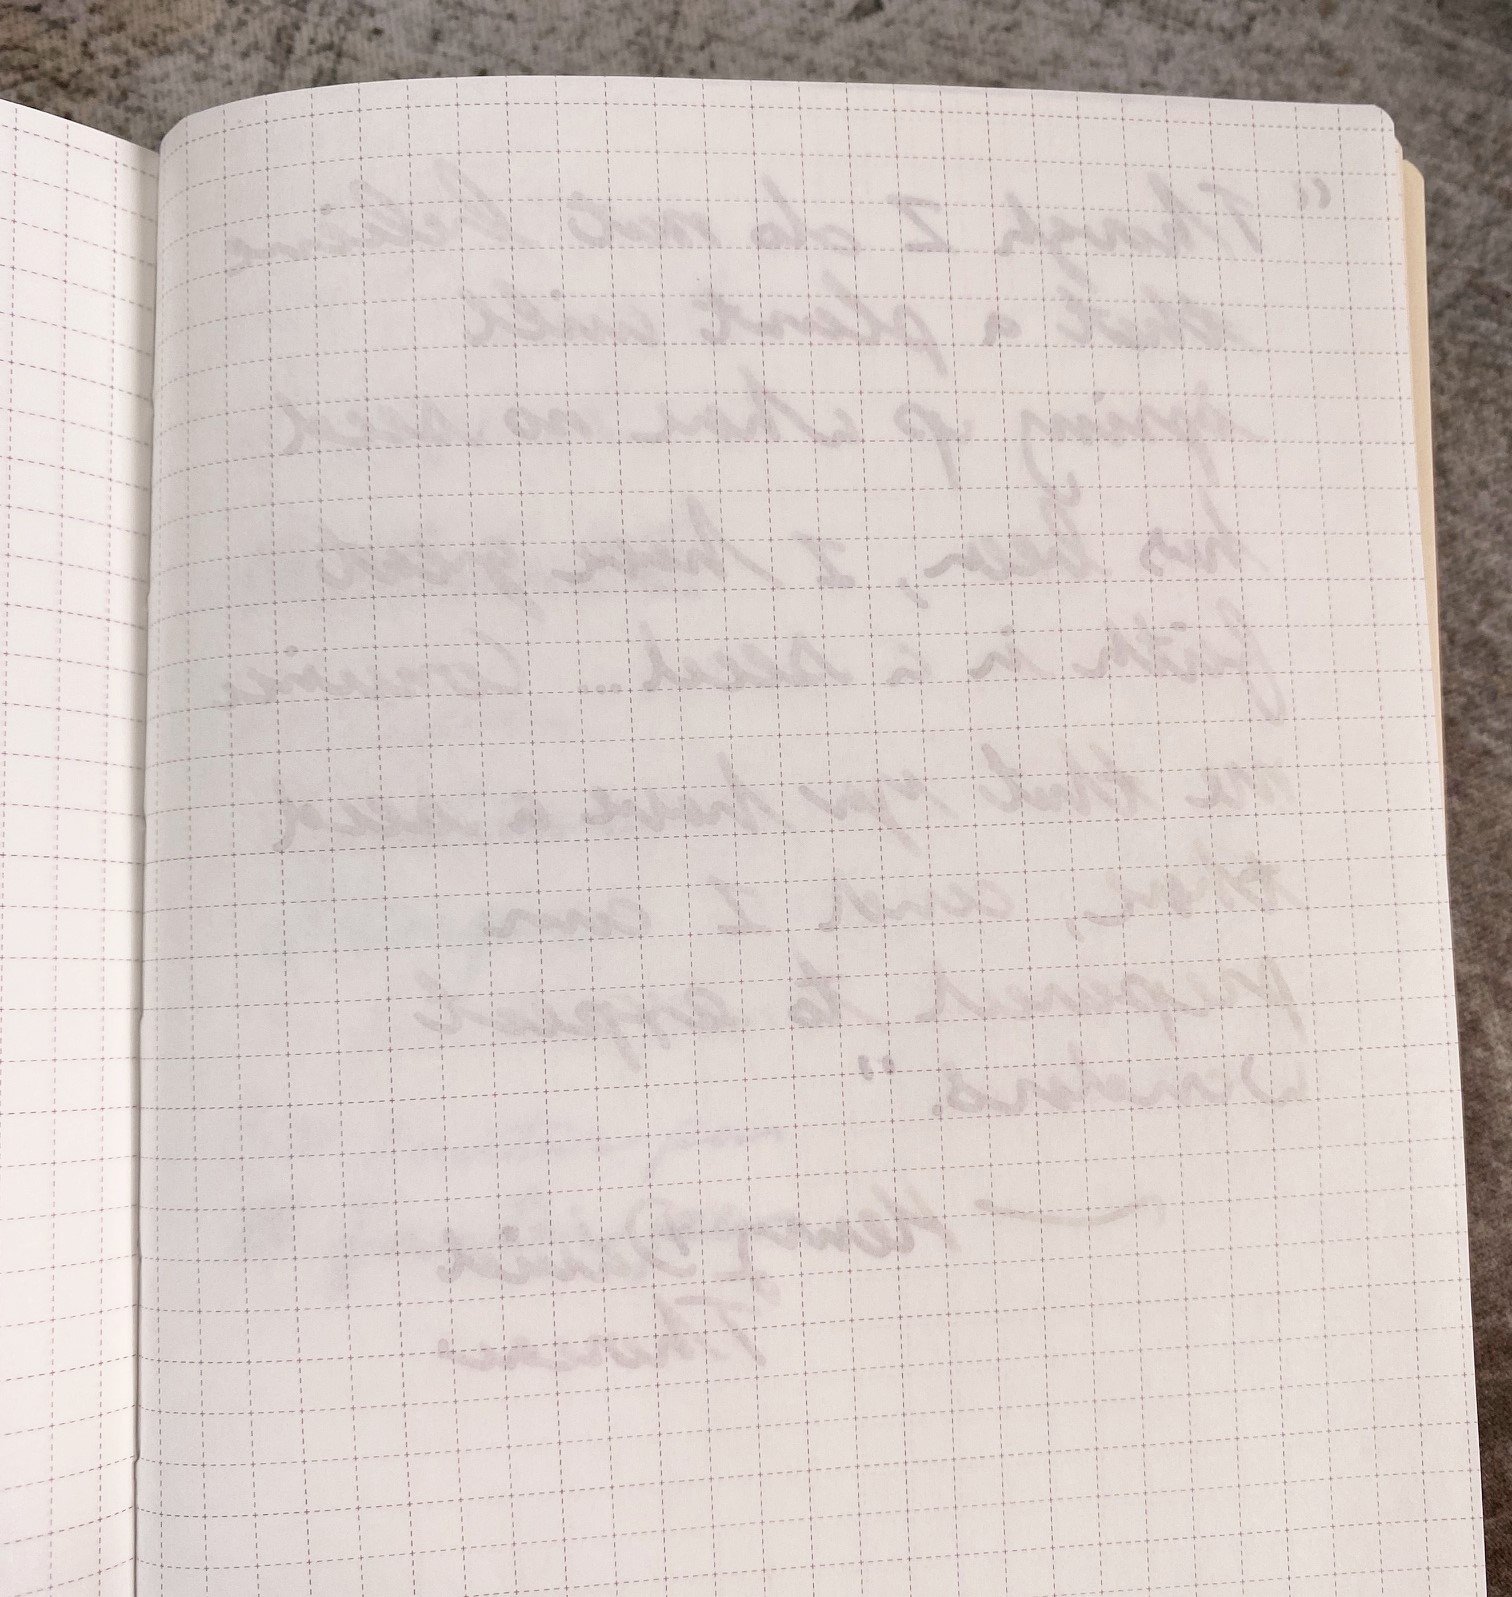 "Though I do not believe
that a plant will
spring up where no seed
has been, I have great
faith in a seed... Convince
me that you have a seed
there, and I am
prepared to expect
wonders."
— Henry David
Thoreau